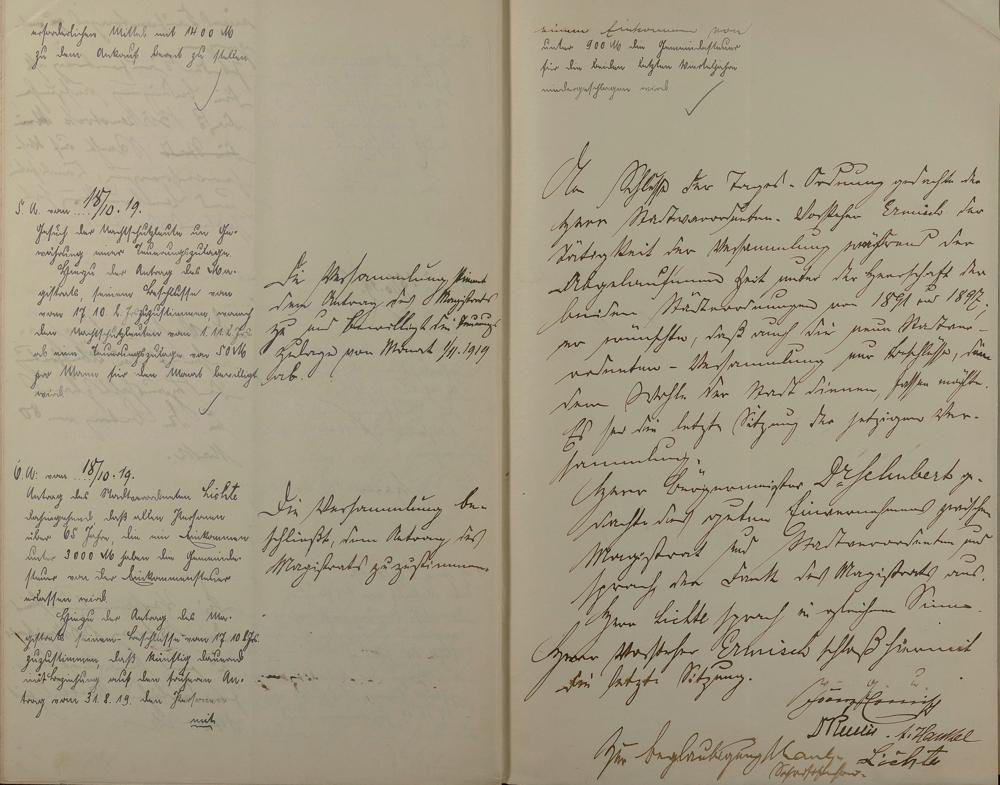 erforderlichen Mittel mit 1400 M
zu dem Ankauf bereit zu stellen
5. A. vom 18/10. 19.
Gesuch der Nachtschutzleute um Ge-
währung einer Teuerungszulage.
Hierzu der Antrag des Ma-
gistrats, seinem Beschlusse vom
vom 17. 10. d. Js. zuzustimmen, wonach
den Nachtschutzleuten vom 1. 11. d. Js.
ab eine Teuerungszulage von 50 M
pro Mann für den Monat bewilligt
wird.
Die Versammlung stimmt
dem Antrag des Magistrates
zu und bewilligt die Teuerungs
zulage vom Monat 1/11. 1919
ab.
6. A. vom 18/10. 19.
Antrag des Stadtverordneten Lichte
dahingehend, daß allen Personen
über 65 Jahre, die ein Einkommen
unter 3000 M haben die Gemeinde-
steuer von der Einkommensteuer
erlassen wird.
Hierzu der Antrag des Ma-
gistrats seinem Beschlusse vom 17. 10. d. Js.
zuzustimmen, daß künftig dauernd
mit Beziehung auf den früheren An-
trag vom 31. 8. 19. den Personen
mit
Die Versammlung be-
schließt, dem Antrag des
Magistrats zuzustimmen.
einem Einkommen von
unter 900 M die Gemeindesteuer
für die beiden letzten Vierteljahre
niedergeschlagen wird.
Am Schlusse der Tages-Ordnung gedachte der
Herr Stadtverordneten-Vorsteher Ernisch der
Tätigkeit der Versammlung während der
abgelaufenen Zeit unter der Herrschaft der
beiden Städteordnungen von 1891 und 1897,
er wünschte, daß auch die neue Stadtver-
ordneten-Versammlung nur Beschlüsse, die
dem Wohle der Stadt dienen, fassen möchte.
Es sei die letzte Sitzung der jetzigen Ver-
sammlung.
Herr Bürgermeister Dr Schubert ge-
dachte des guten Einvernehmens zwischen
Magistrat und Stadtverordneten und
sprach den Dank des Magistrats aus.
Herr Lichte sprach in gleichem Sinne.
Herr Vorsteher Ernisch schloß hiermit
die letzte Sitzung.
v. g. u.
Ernisch
A. Hankel
Zur Beglaubigung
Lichte
Schriftführer.